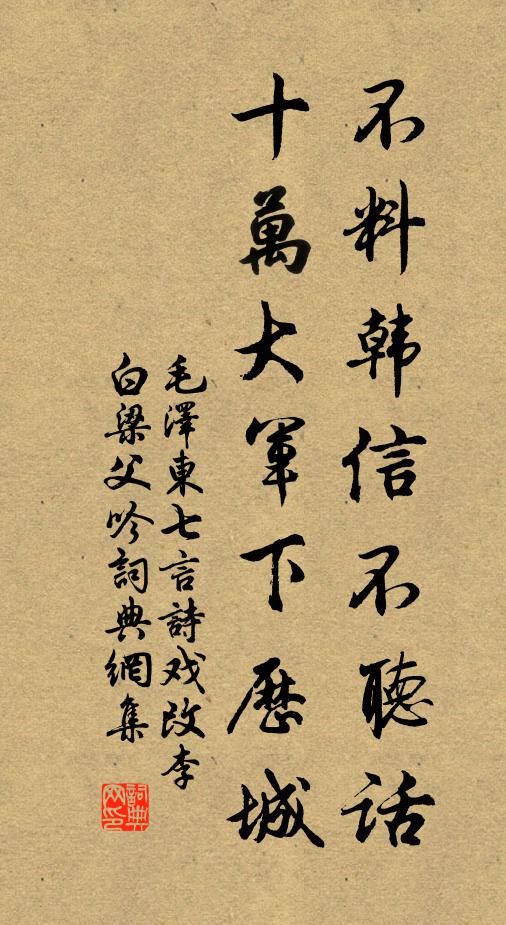 不料韩信不聽话
十萬大軍下歷城
毛澤東七言詩戏改李
白梁父吟詞典網集
詞典
网印